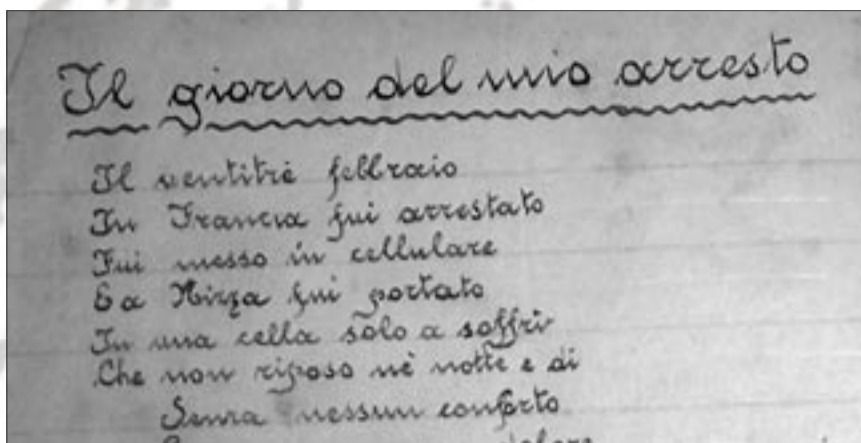 Il giorno del mio arresto
Il ventitrè febbraio
In Francia fui arrestato
Fui messo in cellulare
E a Nizza fui portato
In una cella solo a soffrir
Che non riposo nè notte e di
Senza nessun conforto
dolore